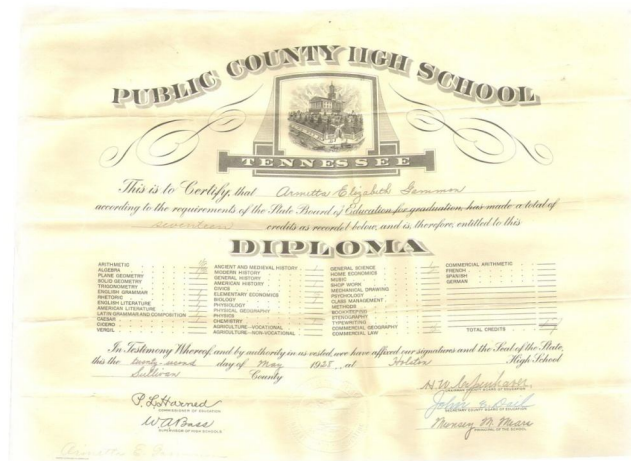 PUBLIC COUNTY HIGH SCHOOL
TENNESSEE
This is to Certify, that Armetta Elizabeth Gammon
according to the requirements of the State Board of Education for graduation, has made a total of
seventeen credits as recorded below, and is, therefore, entitled to this
DIPLOMA
ARITHMETIC
ALGEBRA
PLANE GEOMETRY
SOLID GEOMETRY
TRIGONOMETRY
ENGLISH GRAMMAR
RHETORIC
ENGLISH LITERATURE
AMERICAN LITERATURE
LATIN GRAMMAR AND COMPOSITION
CAESAR
CICERO
VERGIL
ANCIENT AND MEDIEVAL HISTORY
MODERN HISTORY
GENERAL HISTORY
AMERICAN HISTORY
CIVICS
ELEMENTARY ECONOMICS
BIOLOGY
PHYSIOLOGY
PHYSICAL GEOGRAPHY
PHYSICS
CHEMISTRY
AGRICULTURE-VOCATIONAL
AGRICULTURE-NON-VOCATIONAL
GENERAL SCIENCE
HOME ECONOMICS
MUSIC
SHOP WORK
MECHANICAL DRAWING
PSYCHOLOGY
CLASS MANAGEMENT
METHODS
BOOKKEEPING
STENOGRAPHY
TYPEWRITING
COMMERCIAL GEOGRAPHY
COMMERCIAL LAW
COMMERCIAL ARITHMETIC
FRENCH
SPANISH
GERMAN
TOTAL CREDITS 17
In Testimony Whereof, and by authority in us vested, we have affixed our signatures and the Seal of the State,
this the twenty-second day of May 1928, at Holston High School
Sullivan County
P. L. Harned
COMMISSIONER OF EDUCATION
W A Bass
SUPERVISOR OF HIGH SCHOOLS
COUNTY BOARD OF EDUCATION
John
SECRETARY COUNTY BOARD OF EDUCATION
PRINCIPAL OF THE SCHOOL
Armetta E.